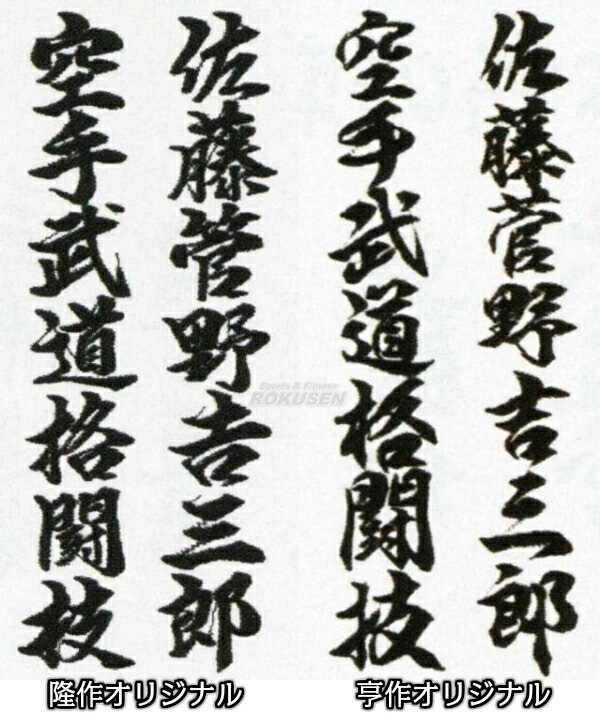 佐藤菅野吉三郎
空手武道格闘技
佐藤管野吉三郎
空手武道格闘技
Sports & Fitness
ROKUSEN
隆作オリジナル
亨作オリジナル